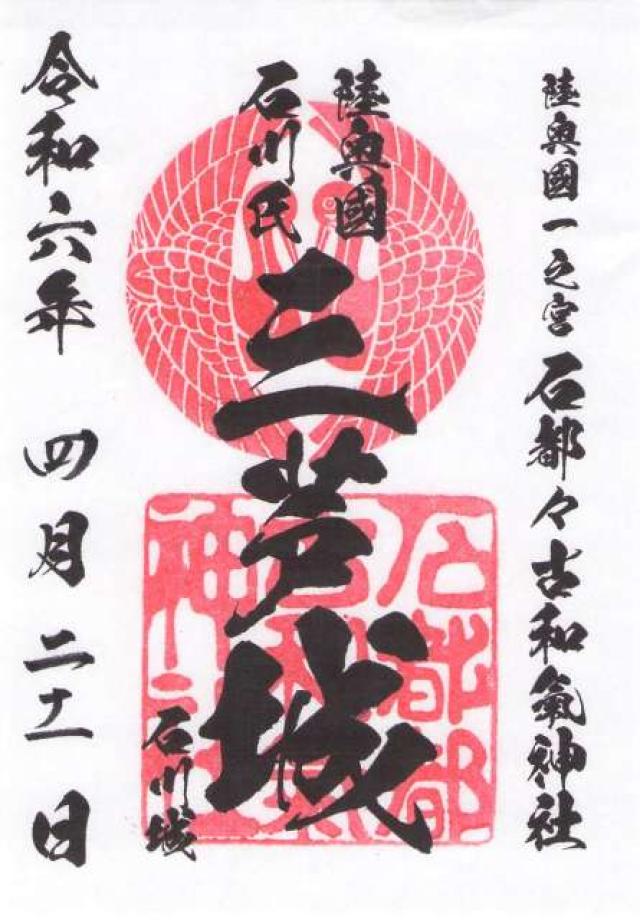 陸奥國一之宮 石都々古和氣神社
陸奥國
石川氏
三芦城
石川城
令和六年 四月 二十一日
石都都